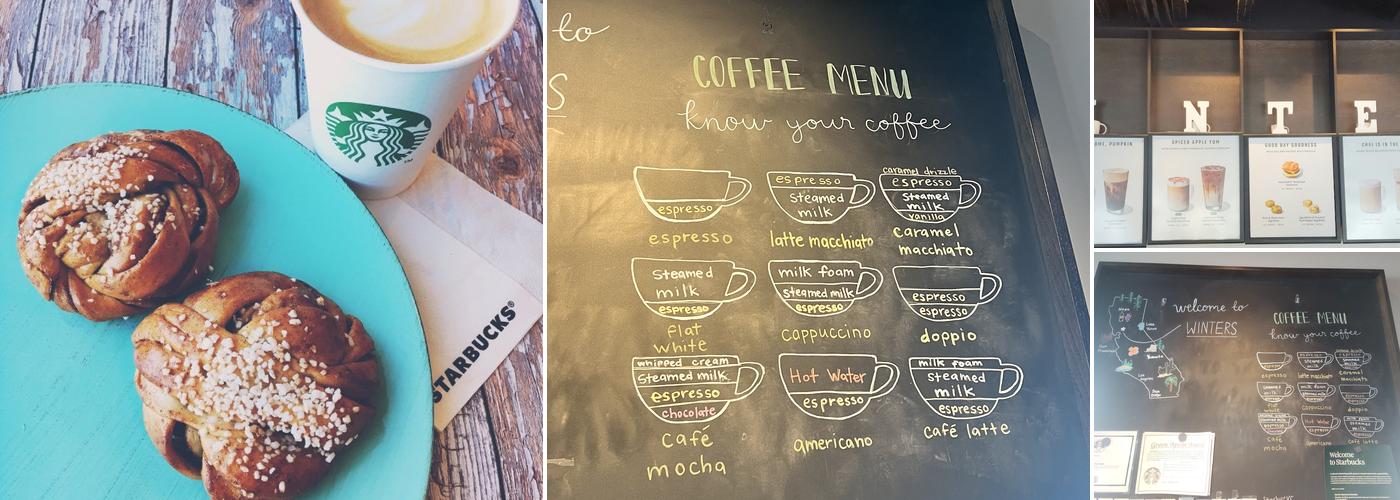 STARBUCKS®
to
S
COFFEE MENU
know your coffee
espresso
espresso
espresso
steamed
milk
latte macchiato
caramel drizzle
espresso
steamed
milk
vanilla
caramel
macchiato
Steamed
milk
espresso
flat
white
milk foam
steamed milk
espresso
cappuccino
espresso
espresso
doppio
whipped cream
Steamed milk
espresso
chocolate
café
mocha
Hot Water
espresso
americano
milk foam
steamed
milk
espresso
café latte
N T E
ME, PUMPKIN
SPICED APPLE YUM
GOOD DAY GOODNESS
CHAI IS IN THE
welcome to
WINTERS
COFFEE MENU
know your coffee
espresso
latte macchiato
caramel
macchiato
flat
white
cappuccino
doppio
Hot Water
café
mocha
americano
café latte
Green Apron Award
Welcome
to Starbucks